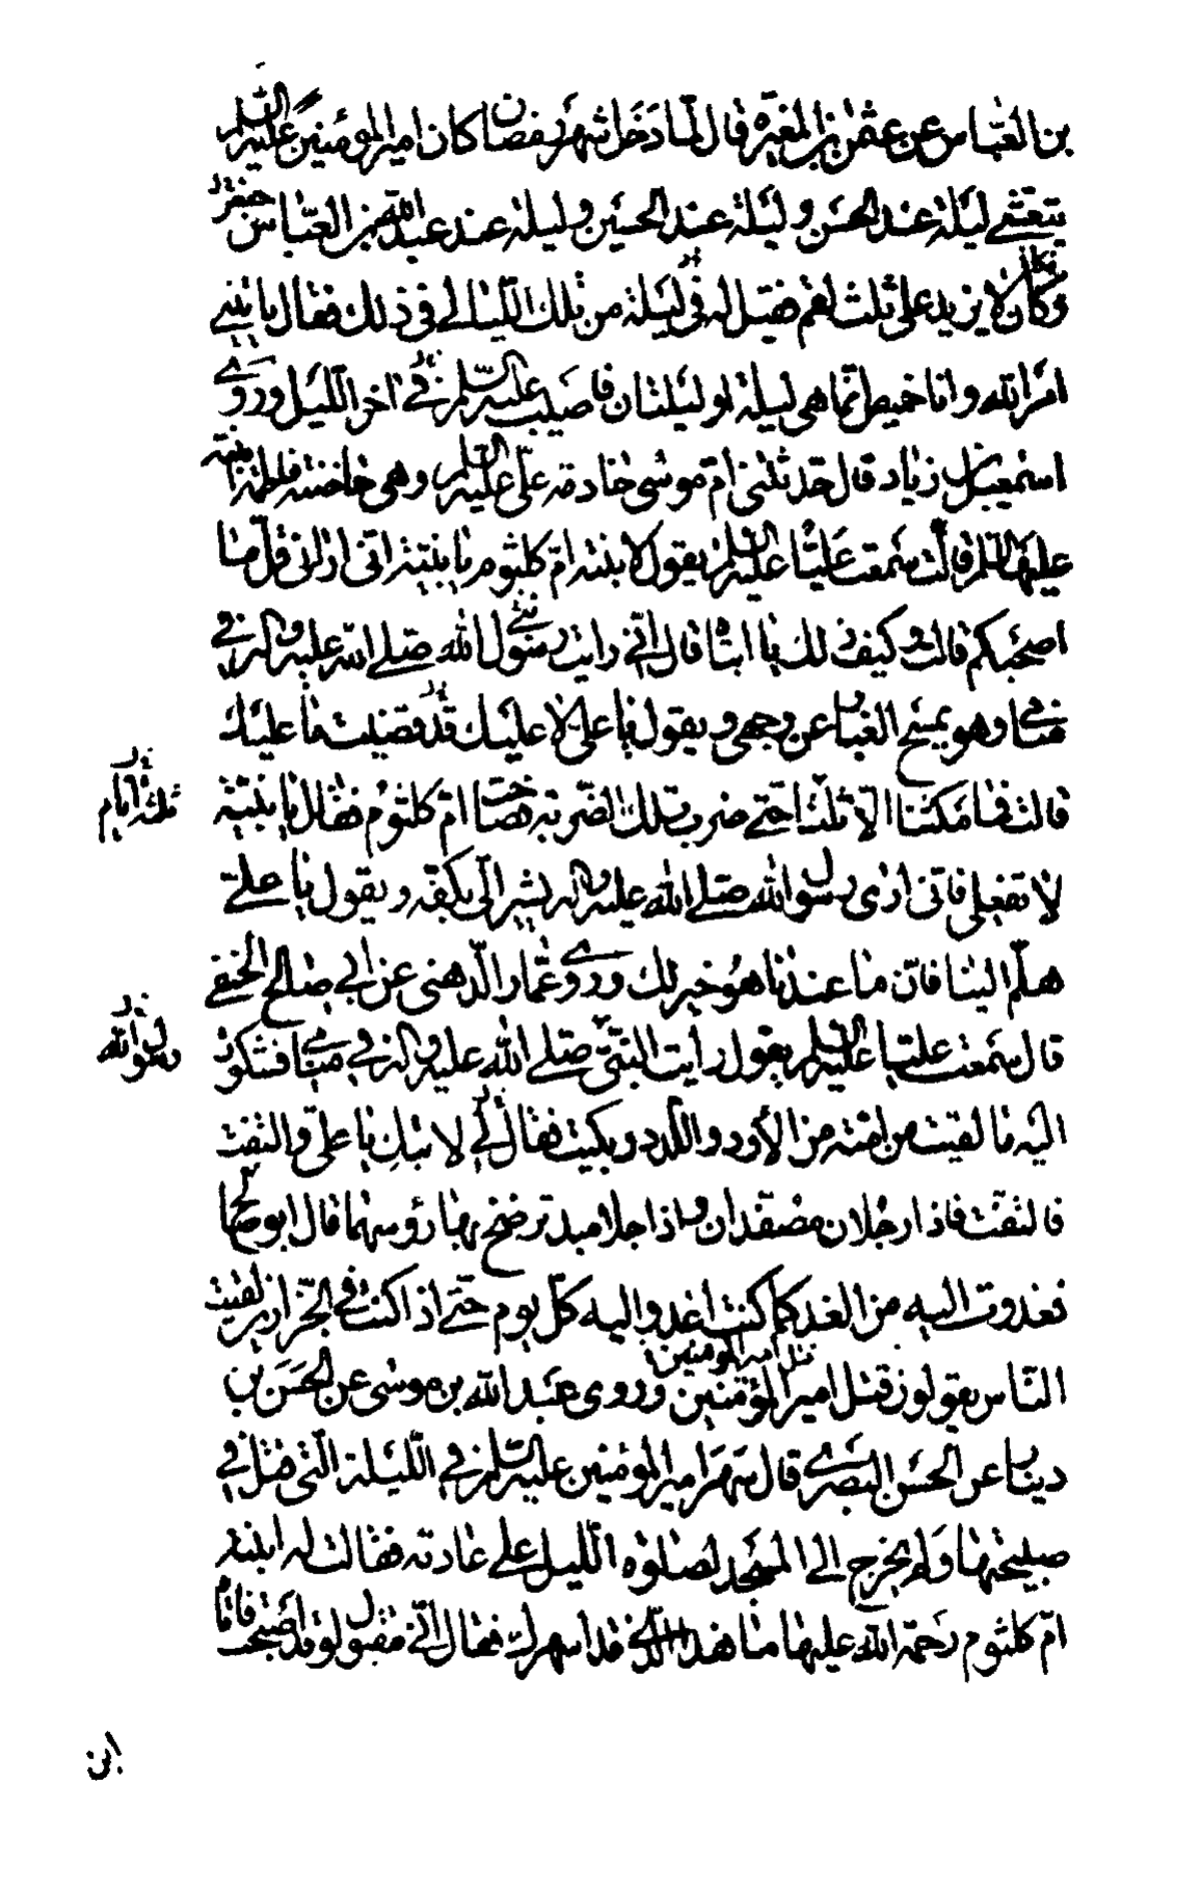 بن العبّاس عن عثمٰن بن المغيرة قال لمّا دَخَل شهر رمضان كان امير المؤمنين عليه السّلم
يتعشّى ليلة عند الحسَن وليَلة عند الحسَين وليلة عند عبد الله بن العبّاس
جعفر
وكان لا يزيد على ثلث لقم فقيل له فى ليَلة من تلك اللّيالى فى ذلك فقال يا بنىّ
فكان
امَر الله وانا خميص انّما هى ليلة او ليَلتان فاصيَب عليه السّلم فى اخر اللّيل ورَوى
اسمٰعيل بن زياد قال حدّثتنى امّ موسى خادمة علىّ عليه السّلم وهى حاضنة فاطمة ابنته
عليهَا السّلم قالت سَمعت عَليّا عليه السّلم يقول لابنته امّ كلثوم يا بنيّة انّى ارانى قلّ ما
اصحَبكم قالت وكيف ذلك يا ابتاه قال انّى رايت رسُول الله صلّى الله عليه واله فى
منامى وهو يمسَح الغبار عن وجهى ويقول يا علىّ لا عليَك قد قضيت ما عليَك
قالت فما مَكثنا الّا ثلثا حتّى ضرب تلك الضّربة فصاحت امّ كلثوم فقال يا بنيّة
ثلثة ايّام
لا تفعلى فانّى ارى رسول الله صلّى الله عليه واله يشير الىّ بكفّه ويقول يا علىّ
هلمّ الينا فانّ ما عندنا هوُ خير لك ورَوى عمّار الدّهنى عن ابى صالح الحنفى
قال سَمعت عليّا عليه السّلم يقول رايت النّبىّ صلّى الله عليه واله فى منامى فشكوت
رسول الله
اليَه ما لقيت من امّته من الأود واللّدد وبكيت فقال لى لا تبكِ يا علىّ والتفت
فالتفتّ فاذا رجُلان مصفّدان واذا جلاميد ترضخ بها رؤسهما قال ابو صالح
فغدوت اليه من الغد كما كنت اغدو اليه كلّ يوم حتّى اذا كنت فى الجزّارين لقيت
النّاس يقولون قتل امير المؤمنين وروى عبَد الله بن موسى عن الحسَن بن
قتل امير المؤمنين
دينار عن الحسَن البصَرى قال سَهَر امير المؤمنين عليه السّلم فى اللّيَلة الّتى قتل فى
صبيحتها وَلم يخرج الى المسَجد لصلوٰة اللّيل على عادته فقالت له ابنته
امّ كلثوم رَحمة الله عليها ما هذا الّذى قد اسهرك فقال انّى مقتول لو قد اصَبحت فاتاه
ابن